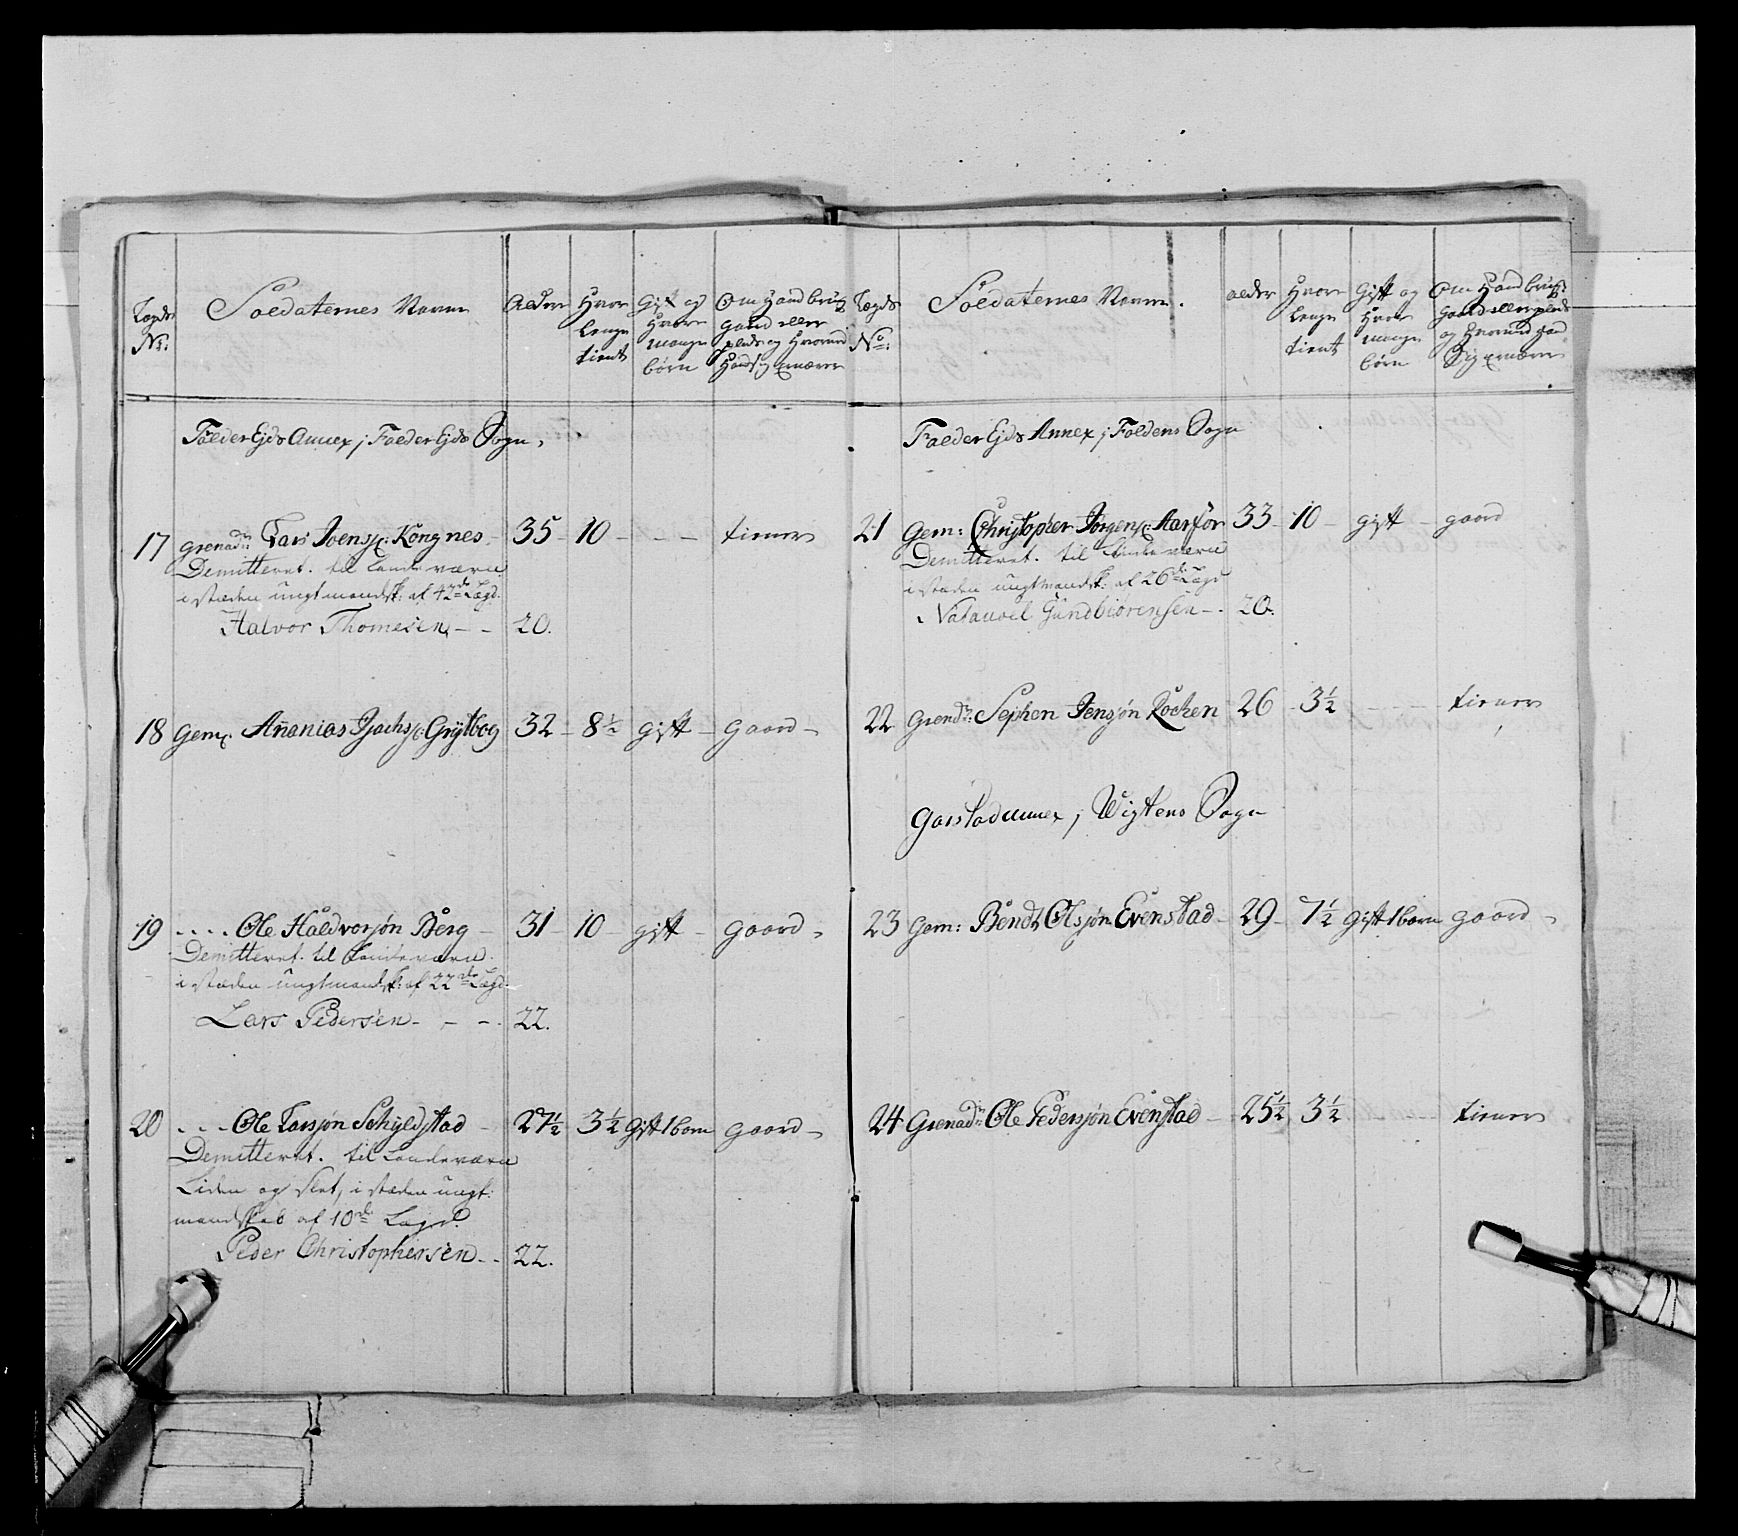 Lægds No: Soldaternes Navne Alder Hvor Lenge tient Gift og Hvor mange børn Om Hand brug gaard eller plads og Hvorved Hand sig ernærer
Foldereids Annex i Foldereids Sogn.
17 Grenad: Lars Joens: Kongnes 35 - 10 - - - tiener
Demitteret. til Landeværn
i stæden ungt mandsk: af 42de Lægd.
Halvor Thomesen - - 20.
18 Gem: Ananias Isachs: Grytbog 32 - 8½ gift - gaard -
19 .... Ole Haldvorsøn Berg - 31 - 10 - gift - gaard -
Demitteret. til Landeværn.
i stæden ungt mandsk: af 22de Lægd.
Lars Pedersen - - - 22.
20 ... Ole Larsøn Schyldstad - 27½ 3½ Gift 1 barn gaard -
Demitteret. til Landeværn
Liden og slet, i stæden ungt:
mandskab af 10de Lægd.
Peder Christophersen - - 22.
Lægds No: Soldaternes Navne. alder Hvor Lenge tient Gift og Hvor mange børn Om Hand brug: gaard eller plads og Hvorved Hand Sig ernærer
Foldereids Annex i Foldens Sogn
21 Gem: Christopher Jørgens: Aarfor 33 - 10 - gift - gaard
Demitteret. til Landeværn
i stæden ungt mandsk: af 26de Lægd
Natanael Gundbiørensen - . 20.
22 Grend: Sephen Jensøn Kochen 26 - 3½ - - - tiener
Garstad Annex i Wigtens Sogn
23 Gem: Bendt Olsøn Evenstad - 29 - 7½ gift 1 barn gaard -
24 Grenad: Ole Pedersøn Evenstad - 25½ 3½ - - tiener